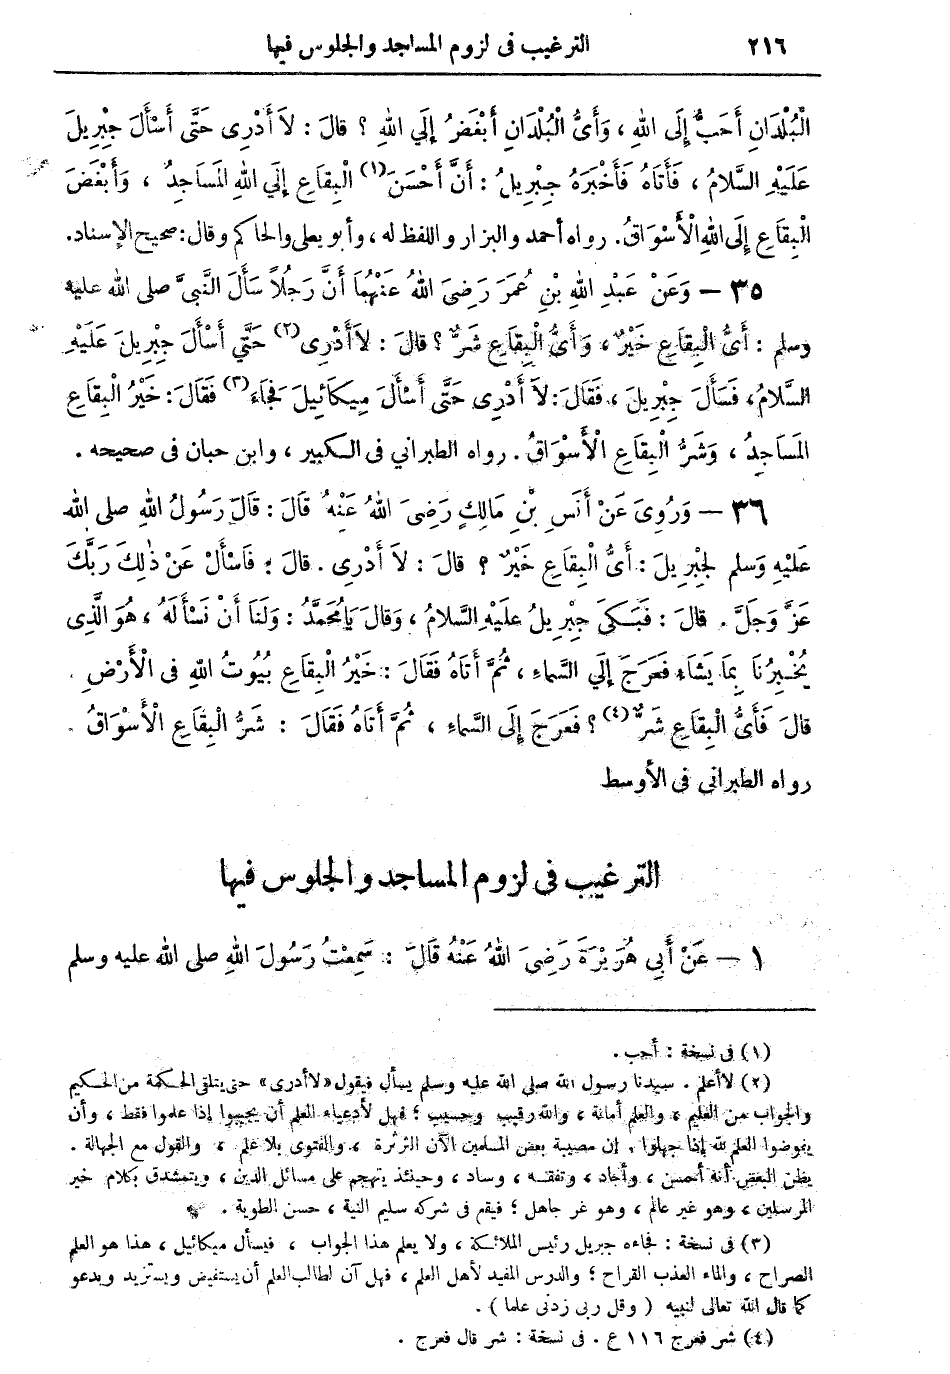 ٢١٦
الترغيب فى لزوم المساجد والجلوس فيها
الْبُلْدَانِ أَحَبُّ إِلَى اللهِ ، وَأَىُّ الْبُلْدَانِ أَبْغَضُ إِلَي اللهِ ؟ قالَ : لاَ أَدْرِى حَتَّى أَسْأَلَ جِبْرِيلَ
عَلَيْهِ السَّلاَمُ ، فَأَتَاهُ فَأَخْبَرَهُ جِبْرِيلُ : أَنَّ أَحْسَنَ (١) الْبِقَاعِ إِلَي اللهِ المَسَاجِدُ ، وَأَبْغَضَ
الْبِقَاعِ إِلَى اللهِ الْأَسْوَاقُ. رواه أحمد والبزار واللفظ له ، وأبو يعلى والحاكم وقال : صحيح الإسناد.
٣٥ – وَعَنْ عَبْدِ اللهِ بْنِ عُمَرَ رَضِىَ اللهُ عَنْهُمَا أَنَّ رَجُلاً سَأَلَ النَّبِىَّ صلى الله عليه
وسلم : أَىُّ الْبِقَاعِ خَيْرٌ ، وَأَىُّ الْبِقَاعِ شَرٌّ ؟ قالَ : لاَ أَدْرِى (٢) حَتَّي أَسْأَلَ جِبْرِيلَ عَلَيْهِ
السَّلاَمُ ، فَسَأَلَ جِبْرِيلَ ، فَقَالَ : لاَ أَدْرِى حَتَّى أَسْأَلَ مِيكَائِيلَ فَجَاءَ (٣) فَقَالَ : خَيْرُ الْبِقَاعِ
المَسَاجِدُ ، وَشَرُّ الْبِقَاعِ الْأَسْوَاقُ . رواه الطبراني فى الكبير ، وابن حبان فى صحيحه .
٣٦ – وَرُوِىَ عَنْ أَنَسِ بْنِ مَالِكٍ رَضِىَ اللهُ عَنْهُ قَالَ : قَالَ رَسُولُ اللهِ صلى الله
عَلَيْهِ وَسلم لِجِبْرِيلَ : أَىُّ الْبِقَاعِ خَيْرٌ ؟ قالَ : لاَ أَدْرِى . قالَ : فَاسْأَلْ عَنْ ذٰلِكَ رَبَّكَ
عَزَّ وَجَلَّ . قالَ : فَبَكَى جِبْرِيلُ عَلَيْهِ السَّلاَمُ ، وَقالَ يَا مُحَمَّدُ : وَلَنَا أَنْ نَسْأَلَهُ ، هُوَ الَّذِى
يُخْبِرُنَا بِمَا يَشَاءُ فَعَرَجَ إِلَي السَّماءِ ، ثُمَّ أَتَاهُ فَقَالَ : خَيْرُ الْبِقَاعِ بُيُوتُ اللهِ فى الْأَرْضِ .
قالَ فَأَىُّ الْبِقَاعِ شَرٌّ (٤) ؟ فَعَرَجَ إِلَى السَّماءِ ، ثُمَّ أَتَاهُ فَقَالَ : شَرُّ الْبِقَاعِ الْأَسْوَاقُ .
رواه الطبراني فى الأوسط
الترغيب فى لزوم المساجد والجلوس فيها
١ – عَنْ أَبِي هُرَيْرَةَ رَضِىَ اللهُ عَنْهُ قَالَ : سَمِعْتُ رَسُولَ اللهِ صلى الله عليه وسلم
(١) فى نسخة : أحب .
(٢) لا أعلم . سيدنا رسول الله صلى الله عليه وسلم يسأل فيقول «لا أدرى» حتى يتلقى الحكمة من الحكيم
والجواب من العليم ، والعلم أمانة ، والله رقيب وحسيب ؛ فهل لأدعياء العلم أن يجيبوا إذا علموا فقط ، وأن
يفوضوا العلم لله إذا جهلوا . إن مصيبة بعض المسلمين الآن الثرثرة ، والفتوى بلا علم ، والقول مع الجهالة .
يظن البعض أنه أحسن ، وأجاد ، وتفقه ، وساد ، وحينئذ يتهجم على مسائل الدين ، ويتمشدق بكلام خير
المرسلين ، وهو غير عالم ، وهو غر جاهل ؛ فيقم فى شركه سليم النية ، حسن الطوية .
(٣) فى نسخة : فجاءه جبريل رئيس الملائكة ، ولا يعلم هذا الجواب ، فيسأل ميكائيل ، هذا هو العلم
الصراح ، والماء العذب القراح ؛ والدرس المفيد لأهل العلم ، فهل آن لطالب العلم أن يستفيض ويستزيد ويدعو
كما قال الله تعالى لنبيه ( وقل ربى زدنى علما ) .
(٤) شر فعرج ١١٦ ع . فى نسخة : شر قال فعرج .